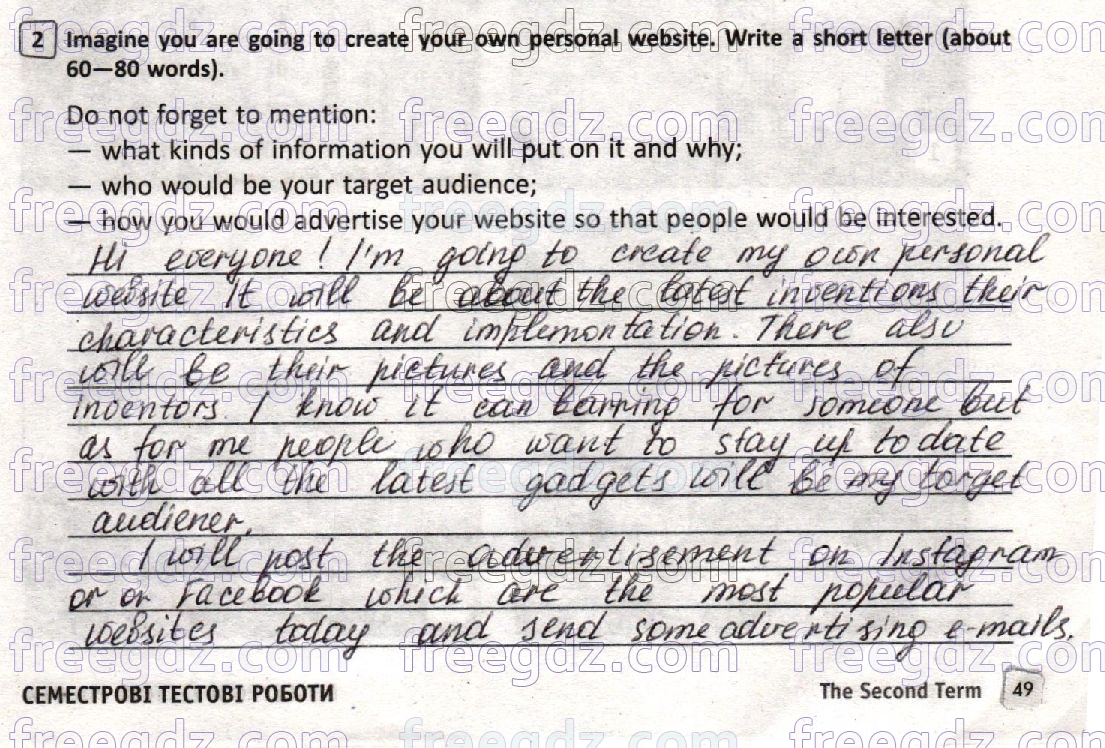 2 Imagine you are going to create your own personal website. Write a short letter (about
60—80 words).
Do not forget to mention:
— what kinds of information you will put on it and why;
— who would be your target audience;
— how you would advertise your website so that people would be interested.
Hi everyone! I'm going to create my own personal
website It will be about the latest inventions their
characteristics and implemontation. There also
will be their pictures and the pictures of
inventors. I know it can barring for someone but
as for me people who want to stay up to date
with all the latest gadgets will be my target
audiener.
I will post the advertisement on Instagram
or on Facebook which are the most popular
websites today and send some advertising e-mails.
СЕМЕСТРОВІ ТЕСТОВІ РОБОТИ
The Second Term 49
freegdz.com